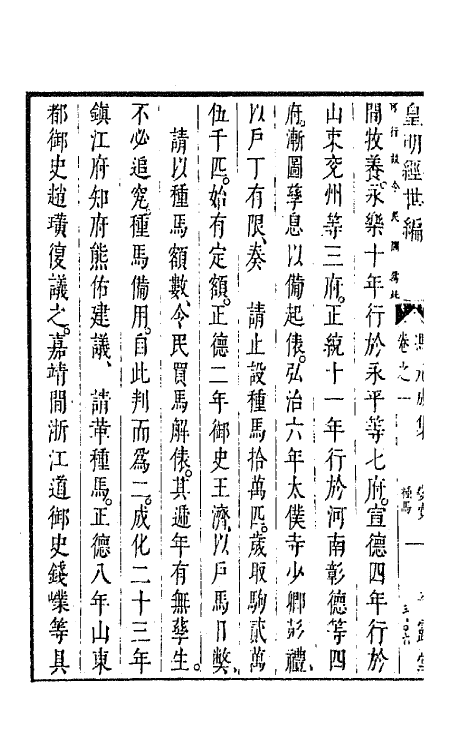 皇明經世編
卷之一
種馬
間牧養永樂十年行於永平等七府。宣德四年行於
山東兖州等三府。正統十一年行於河南彰德等四
府。漸圖孳息以備起俵。弘治六年太僕寺少卿彭禮、
以戶丁有限、奏　請止設種馬拾萬匹。歲取駒貳萬
伍千匹。始有定額。正德二年御史王濟、以戶馬日獘、
請以種馬額數、令民買馬解俵。其遞年有無孳生。
不必追究。種馬備用。自此判而爲二。成化二十三年
鎮江府知府熊佑建議、　請革種馬。正德八年山東
都御史趙璜復議之。嘉靖間浙江道御史錢嶫等具